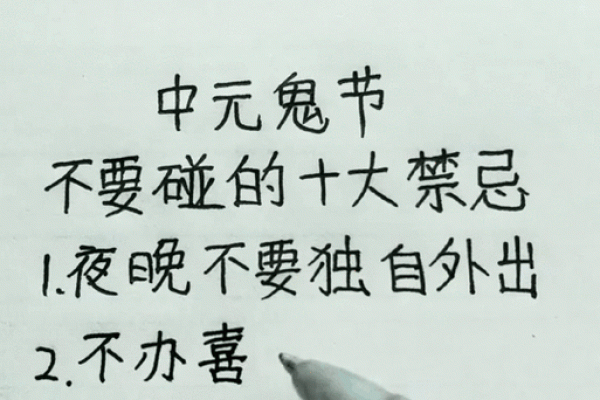 中元鬼节
不要碰的十大禁忌
1.夜晚不要独自外出
2.不办喜